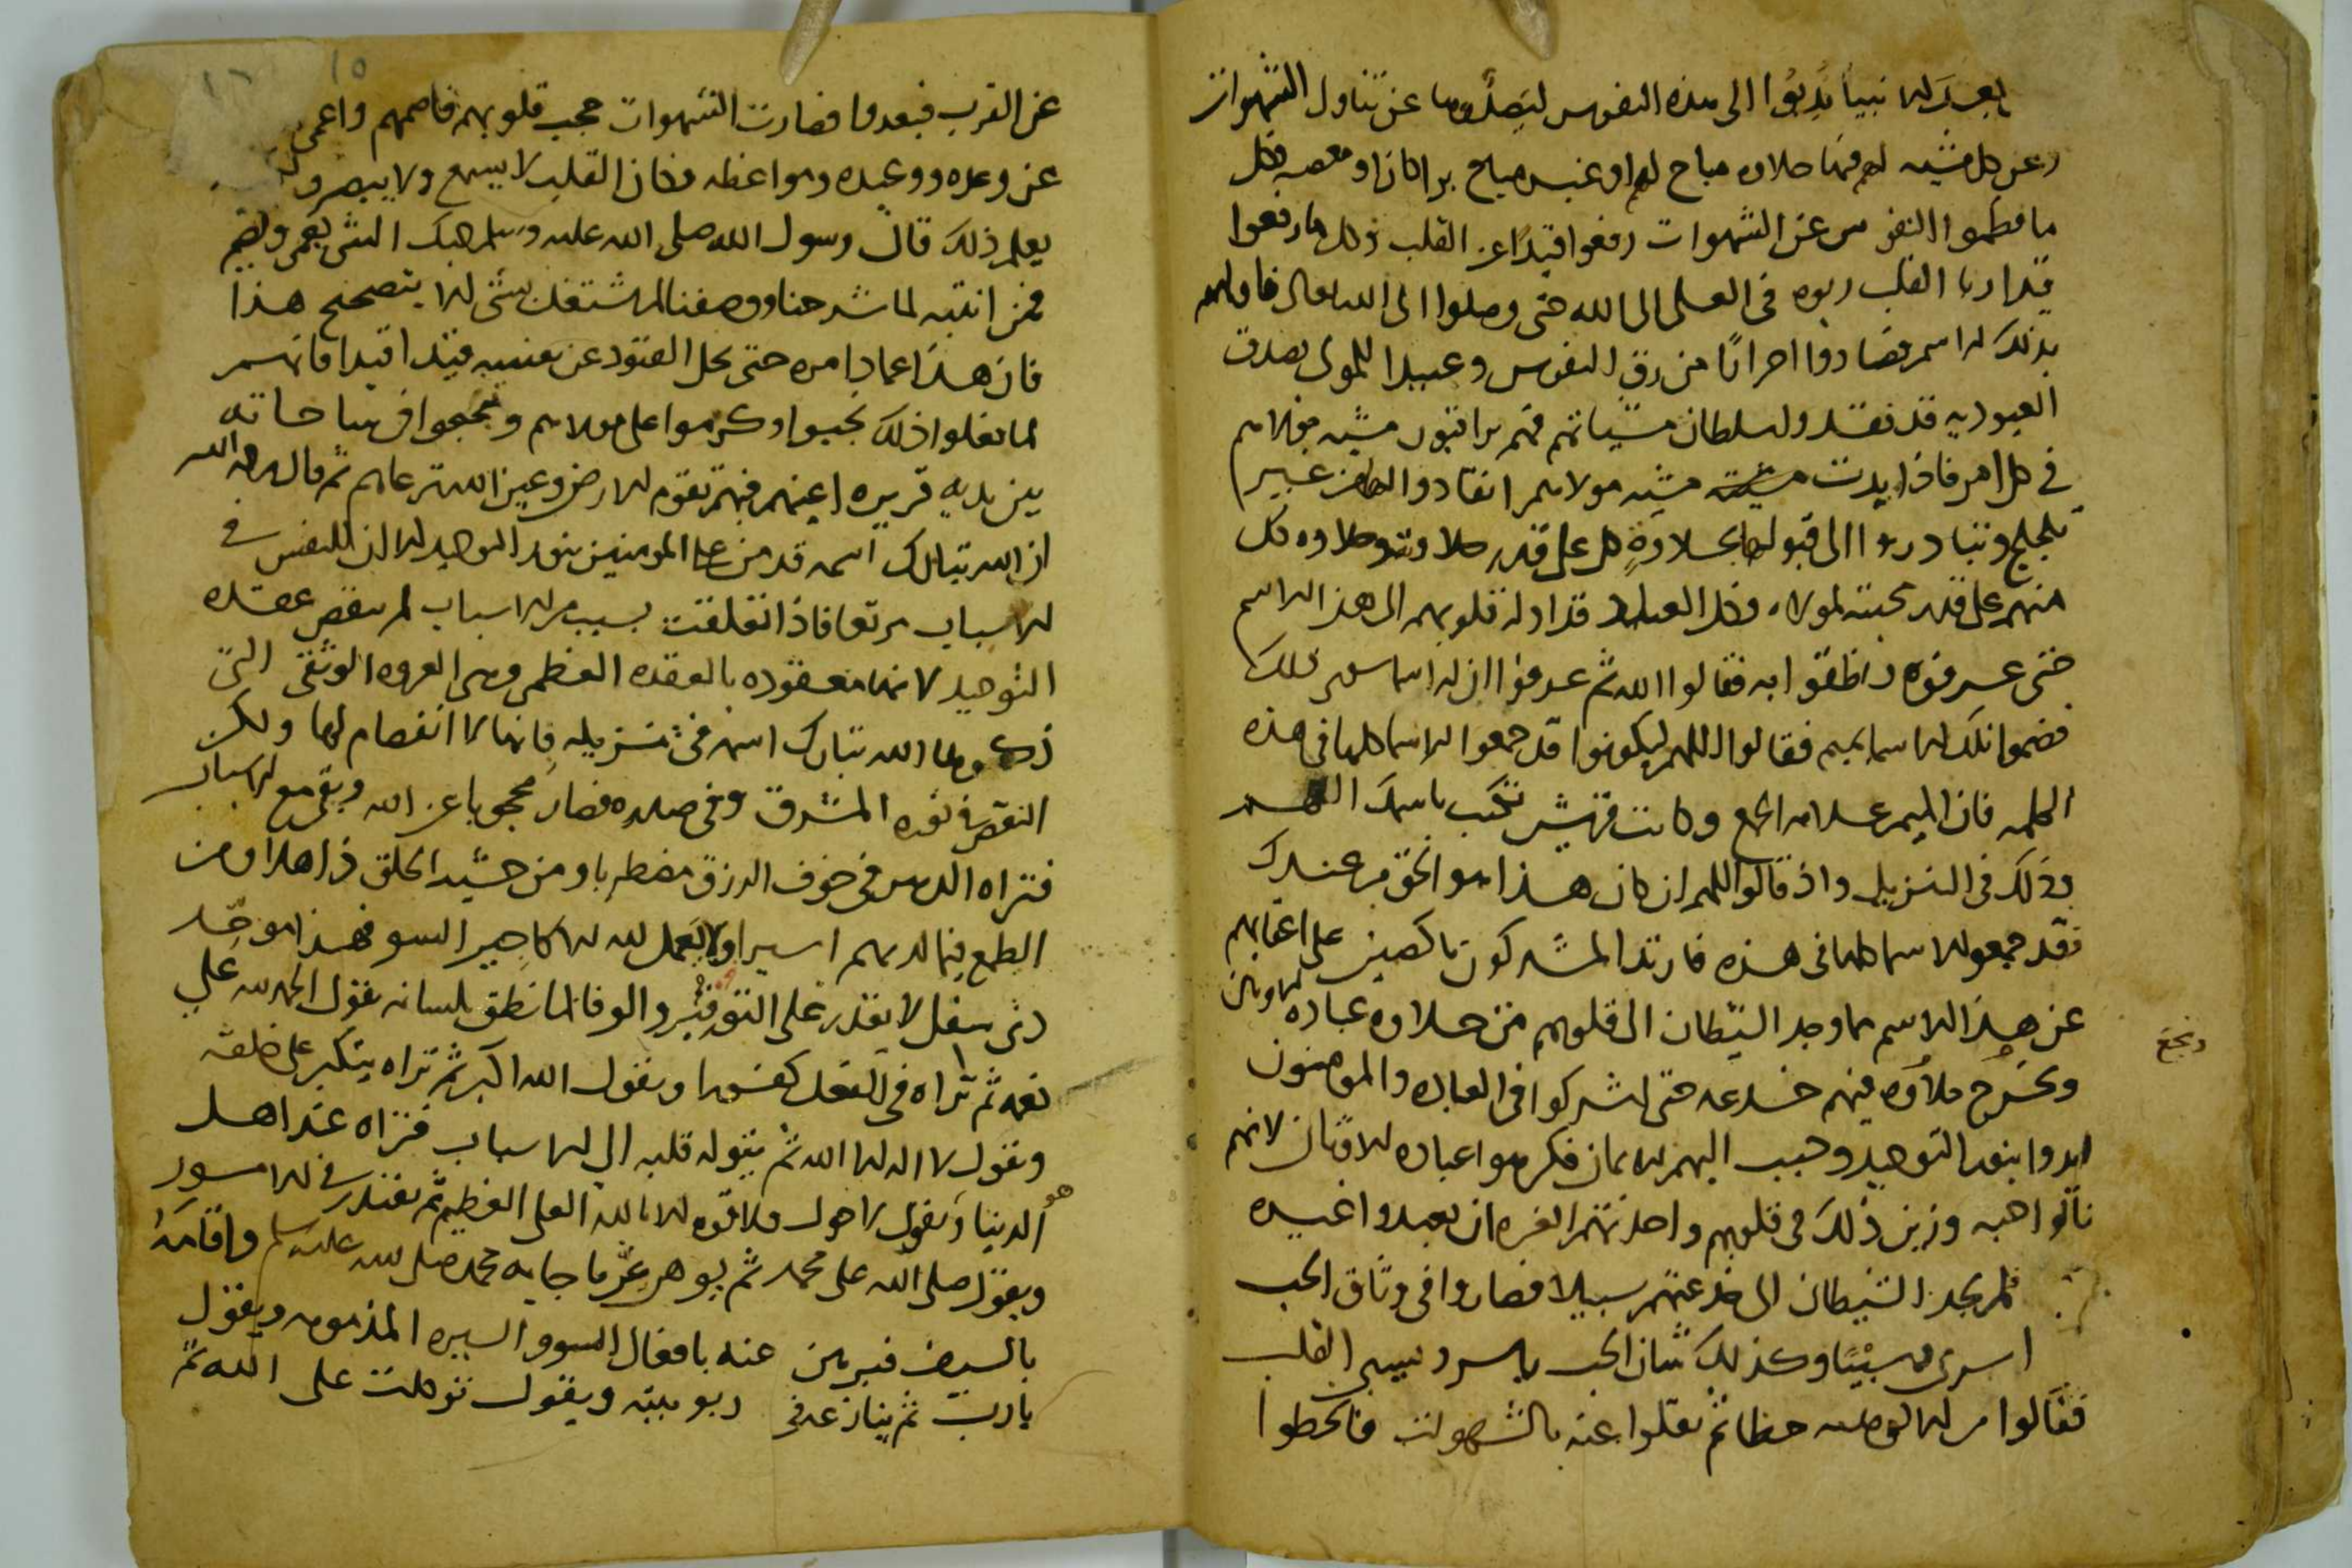 بعد الانبيا بُدِئوا الى هذه النفوس ليصدّوها عن تناول الشهوات
وعن كل مشيه لهم فيها حلاوه مباح لهم او غير مباح برا كان او معصيه فكل
ما فطموا النفوس عن الشهوات رفعوا قيدًا عن القلب فكل ما رفعوا
قيدا ربا القلب ربوه فى العلى الى الله حتى وصلوا الى الله تعالى فاولهم
بذلك الاسم فصاروا احرارًا من رق النفوس وعبيدا للمولى بصدق
العبوديه قد فقدوا سلطان مشياتهم فهم يراقبون مشيه مولاهم
فى كل امر فاذا بدت مشيه مولاهم انقادوا لها من غير
تلجلج وتبادروا الى قبولها بحلاوةٍ كل على قدر حلاوته وحلاوه كل
منهم على قدر محبته لمولاه وكل العباد قد اوله قلوبهم الى هذا الاسم
حتى عرفوه ونطقوا به فقالوا الله ثم عرفوا ان له اسما سوى ذلك
فضموا تلك الاسما بميم فقالوا اللهم ليكونوا قد جمعوا الاسما كلها فى هذه
الكلمه فان الميم علامه الجمع وكانت قريش تكتب باسمك اللهم
وذلك فى التنزيل واذ قالوا اللهم ان كان هذا هو الحق من عندك
فقد جمعوا الاسما كلها فى هذه فارتد المشركون ناكصين على اعقابهم
عن هذا الاسم بما وجد الشيطان الى قلوبهم من حلاوه عباده الاوثان
ونجع
ونجع حلاوه فيهم خدعه حتى اشركوا فى العباده والمومنون
ايدوا بنور التوحيد وحبب اليهم الايمان فكرهوا عباده الاوثان لانهم
نالوا حبه وزين ذلك فى قلوبهم واخذتهم الغيره ان يعبدوا غيره
فلم يجد الشيطان الى خدعتهم سبيلا فصاروا فى وثاق الحب
اسرى وسبيًا وكذلك شان الحب ياسر ويسبى القلب
فقالوا من الوصله حظا ثم نقلوا عنه بالشهوات فانحطوا
١٥
عن القرب فبعدوا فصارت الشهوات حجب قلوبهم فاصمهم واعمى
عن وعده ووعيده ومواعظه فكان القلب لا يسمع ولا يبصر
يعلم ذلك قال رسول الله صلى الله عليه وسلم حبك الشى يعمى ويصم
فمن انتبه لما شرحنا ووصفنا لم يشتغل بشى الا بتصحيح هذا
فان هذا عماد امره حتى يحل القيود عن نفسه قيدا قيدا فانهم
لما فعلوا ذلك نجبوا وكرموا على مولاهم وتبحبحوا فى ساحاته
بين يديه قريره اعينهم فبهم تقوم الارض وعين الله ترعاهم ثم قال رحمه الله
ان الله تبارك اسمه قد من على المومنين بنور التوحيد الا ان للنفس فى
الاسباب مرتعا فاذا تعلقت بسبب من الاسباب لم ينقض عقده
التوحيد لانها معقوده بالعقده العظمى وهى العروه الوثقى التى
ذكرها الله تبارك اسمه فى تنزيله بانها لا انفصام لها ولكن
النقص فى نوره المشرق وفى صدره فصار محجوبا عن الله وبقى مع الاسباب
فتراه الدهر فى خوف الرزق مضطربا ومن خشيه الخلق ذاهلا ومن
الطمع فيما لديهم اسيرا ولا يعمل لله الا كاجير السو فهذا موحد
دنى سفل لا يقدر على التوقير والوفا لما نطق بلسانه يقول الحمد لله على
نعمه ثم تراه فى الفعل كفورا ويقول الله اكبر ثم تراه يتكبر على خلقه
ويقول لا اله الا الله ثم يتوله قلبه الى الاسباب فتراه عند اهل
الدنيا ويقول لا حول ولا قوه الا بالله العلى العظيم ثم يقتدر فى الامور
ويقول صلى الله على محمد ثم يوهن عُر ما جا به محمد صلى الله عليه وسلم واقامهُ
بالسيف فيرهن عنه بافعال السوو السيره المذمومه ويقول
يا رب ثم ينازعه فى ربوبيته ويقول توكلت على الله ثم